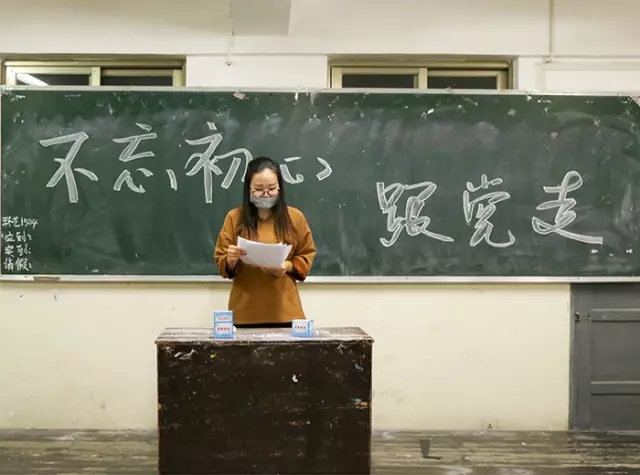 不忘初心
跟党走
环艺1504
应到:
实到:
请假: